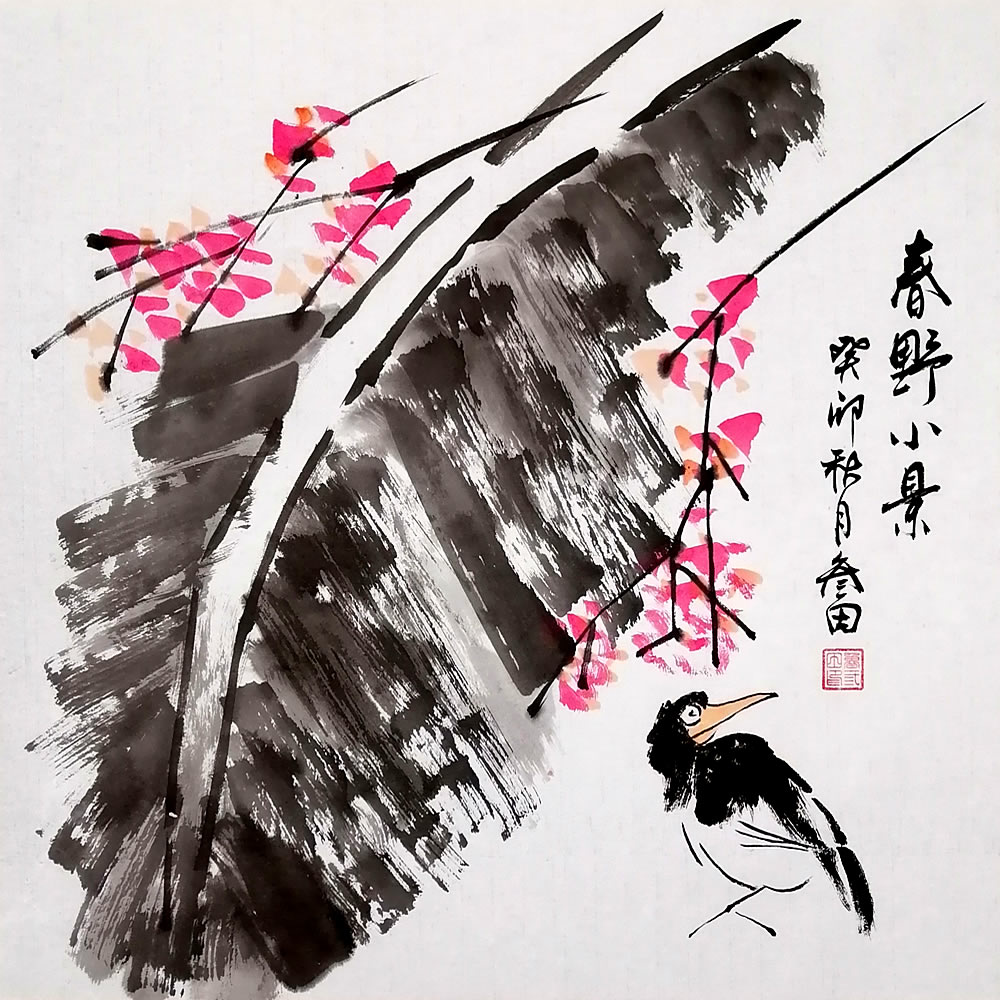 春野小景
癸卯秋月叁田